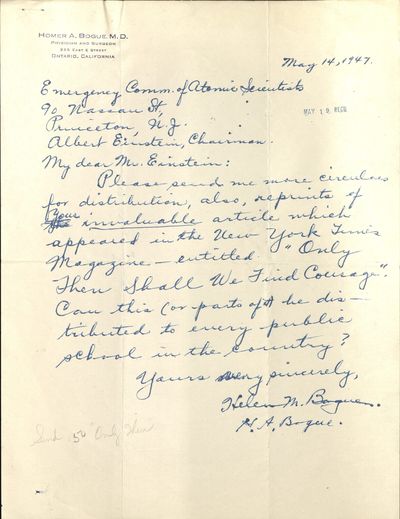 HOMER A. BOGUE, M.D.
PHYSICIAN AND SURGEON
ONTARIO, CALIFORNIA
May 14, 1947.
Emergency Comm. of Atomic Scientists
90 Nassau St,
Princeton, N.J.
MAY 19 RECD
Albert Einstein, Chairman.
My dear Mr. Einstein:
Please send me more circulars
for distribution, also, reprints of
the Your invaluable article which
appeared in the New York Times
Magazine — entitled "Only
Then Shall We Find Courage".
Can this (or parts of it) be dis-
tributed to every public
school in the country?
Yours very sincerely,
Helen M. Bogue.
H. A. Bogue.
Send 50 "Only Then